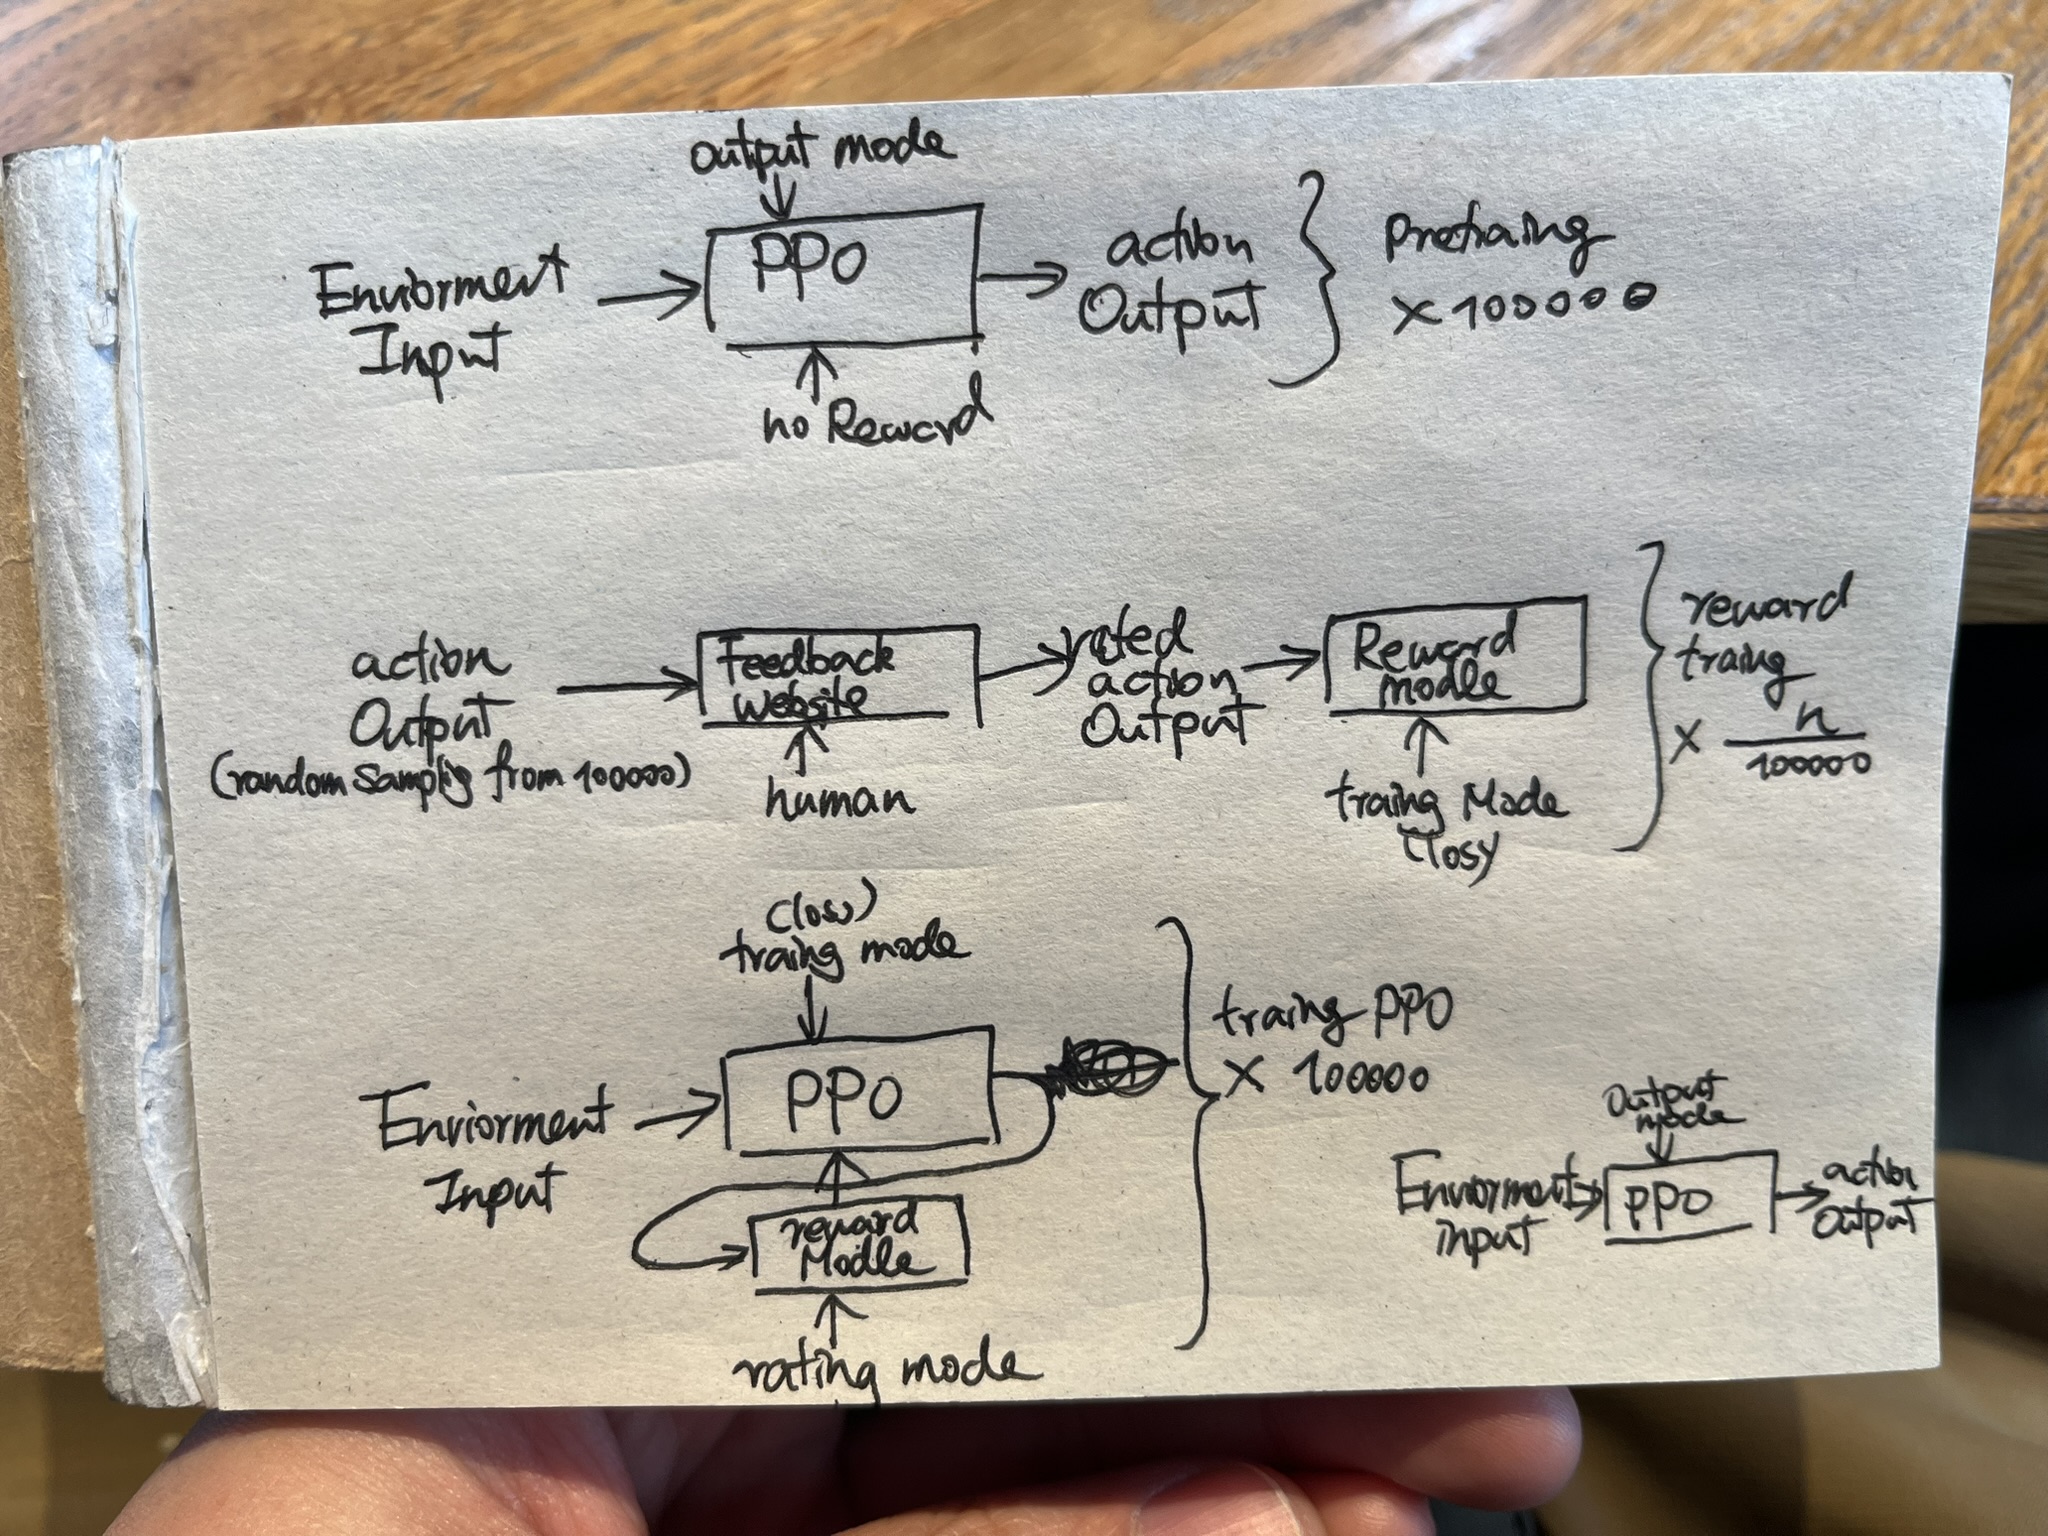 output mode
PPO
Enviorment
Input
no Reward
action
Output
Pretraing
×100000
action
Output
(random sampling from 100000)
Feedback
website
human
rated
action
Output
Reward
modle
traing Mode
reward
traing
× n
100000
(loss)
traing mode
Enviorment
Input
PPO
reward
Modle
rating mode
traing PPO
× 100000
Output
mode
Enviorment
input
PPO
action
output